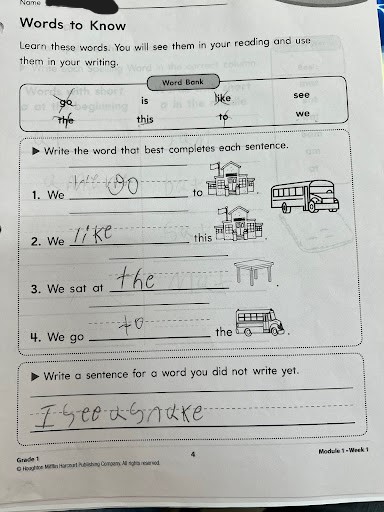 Name
Words to Know
Learn these words. You will see them in your reading and use
them in your writing.
Word Bank
go is like see
the this to we
▶ Write the word that best completes each sentence.
1. We go to .
2. We like this .
3. We sat at the .
4. We go to the .
▶ Write a sentence for a word you did not write yet.
I see a snake
Grade 1 4 Module 1 • Week 1
© Houghton Mifflin Harcourt Publishing Company. All rights reserved.